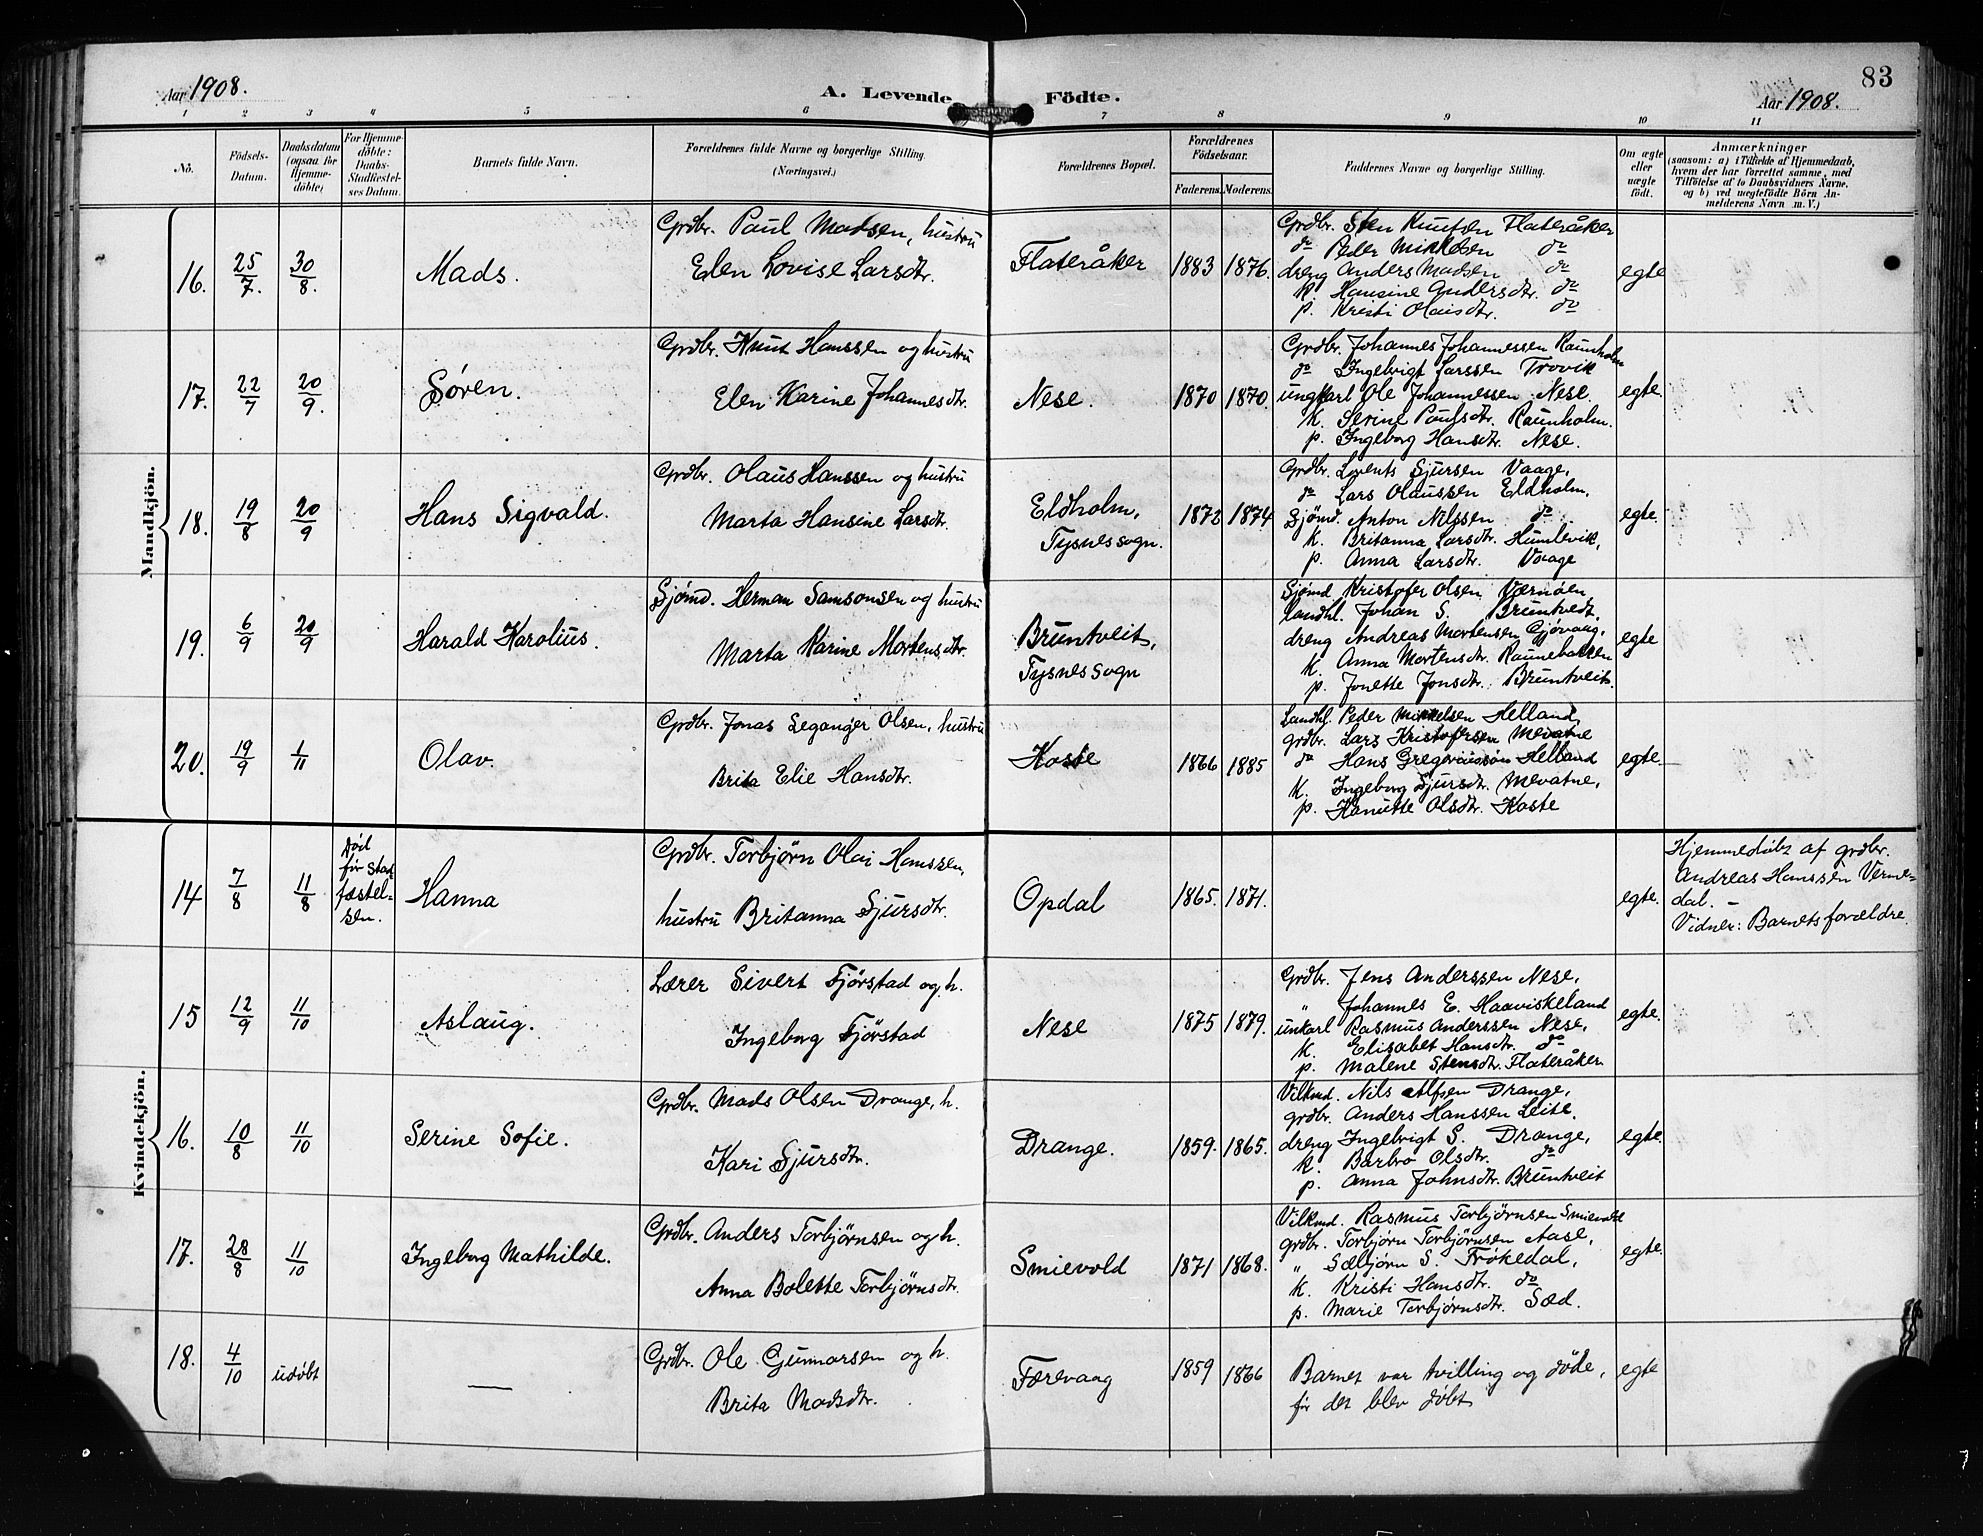 Aar 1908.
A. Levende Födte.
83
Aar 1908.
1 2 3 4 5 6 7 8 9 10 11
No.
Födsels-Datum.
Daabsdatum (ogsaa for Hjemme-döbte)
For Hjemme-döbte: Daabs-Stadfæstel-ses Datum.
Barnets fulde Navn.
Forældrenes fulde Navne og borgerlige Stilling. (Næringsvei.)
Forældrenes Bopæl.
Forældrenes Födselsaar.
Faderens. Moderens.
Faddernes Navne og borgerlige Stilling.
Om ægte eller uægte födt.
Anmærkninger
(saasom: a) i Tilfælde af Hjemmedaab, hvem der har forrettet samme, med Tilföielse af to Daabsvidners Navne. og b) ved uegtefödte Börn An-melderens Navn m. V.)
Mandkjön.
16. 25/7. 30/8. Mads.
Grdbr. Paul Madsen, hustru
Elen Lovise Larsdtr.
Flateråker 1883 1876.
Grdbr. Sten Knutsen Flateråker
do Peder Mikkelsen do
dreng Anders Madsen do
k. Hansine Andersdtr. do
p. Kristi Olaisdtr. do
egte
17. 22/7 20/9. Søren.
Grdbr. Knut Hanssen og hustru
Elen Karine Johannesdtr.
Nese. 1870 1870.
Grdbr. Johannes Johannessen Raunholm
do Ingelvigt Larssen Trovik
ungkarl Ole Johannessen Nese.
k. Serine Paulsdtr. Raunholm.
p. Ingeborg Hansdtr. Nese.
egte.
18. 19/8 20/9 Hans Sigvald.
Grdbr. Olaus Hanssen og hustru
Marta Hansine Larsdtr.
Eldholm,
Tysnes sogn.
1872 1874
Grdbr. Lorents Sjursen Vaage,
do Lars Olaussen Eldholm,
Sjømd. Anton Nilssen do
k. Britanna Larsdtr. Humlevik,
p. Anna Larsdtr. Vaage
egte.
19. 6/9 20/9 Harald Karolius.
Sjømd. Herman Samsonsen og hustru
Marta Karine Mortensdtr.
Bruntveit,
Tysnes sogn
Sjømd Kristofer Olsen Værnøen
Landhl. Johan S. Bruntvedt,
dreng Andreas Mortensen Gjøvaag,
k. Anna Mortensdtr. Raunebakken
p. Jonette Jonsdtr. Bruntveit.
egte
20. 19/9 1/11 Olav.
Grdbr. Jonas Leganger Olsen, hustru
Brita Elie Hansdtr.
Koste 1866 1885
Landhl. Peder Mikkelsen Helland,
grdbr. Lars Kristofersen Mevatne
do Hans Gregoriussøn Helland
k. Ingeborg Sjursdtr. Mevatne,
p. Hanutte Olsdtr. Koste
egte.
Kvindekjön.
14 7/8 11/8
Død før Stadfæstelsen.
Hanna
Grdbr. Torbjørn Olai Hanssen,
hustru Britanna Sjursdtr.
Opdal 1865. 1871.
egte.
Hjemmedøbt af grdbr.
Andreas Hanssen Verne-
dal. –
Vidner: Barnets forældre.
15 12/9 11/10 Aslaug.
Lærer Sivert Fjørstad og h.
Ingeborg Fjørstad
Nese 1875 1879.
Grdbr. Jens Anderssen Nese,
" Johannes E. Haaviskeland
unkarl Rasmus Anderssen Nese,
k. Elisabet Hansdtr. do
p. Malene Stensdtr. Flateråker
egte.
16. 10/8 11/10 Serine Sofie.
Grdbr. Mads Olsen Drange, h.
Kari Sjursdtr.
Drange. 1859. 1865.
Vilkmd. Nils Alfsen Drange,
grdbr. Anders Hanssen Leite.
dreng Ingelvigt S. Drange,
k. Barbro Olsdtr. do
p. Anna Johnsdtr. Bruntveit
egte.
17. 28/8 11/10 Ingeborg Mathilde.
Grdbr. Anders Torbjørnsen og h.
Anna Bolette Torbjørnsdtr.
Smievold 1871 1868.
Vilkmd. Rasmus Torbjørnsen Smievold
grdbr. Torbjørn Torbjørnsen Aase,
" Sæbjørn S. Frøkedal,
k. Kristi Hansdtr. do
p. Marie Torbjørnsdtr. Sæd.
egte.
18. 4/10 udøbt —
Grdbr. Ole Gunnarsen og h.
Brita Madsdtr.
Færevaag 1859 1866
Barnet var tvilling og døde,
før det blev døbt
egte